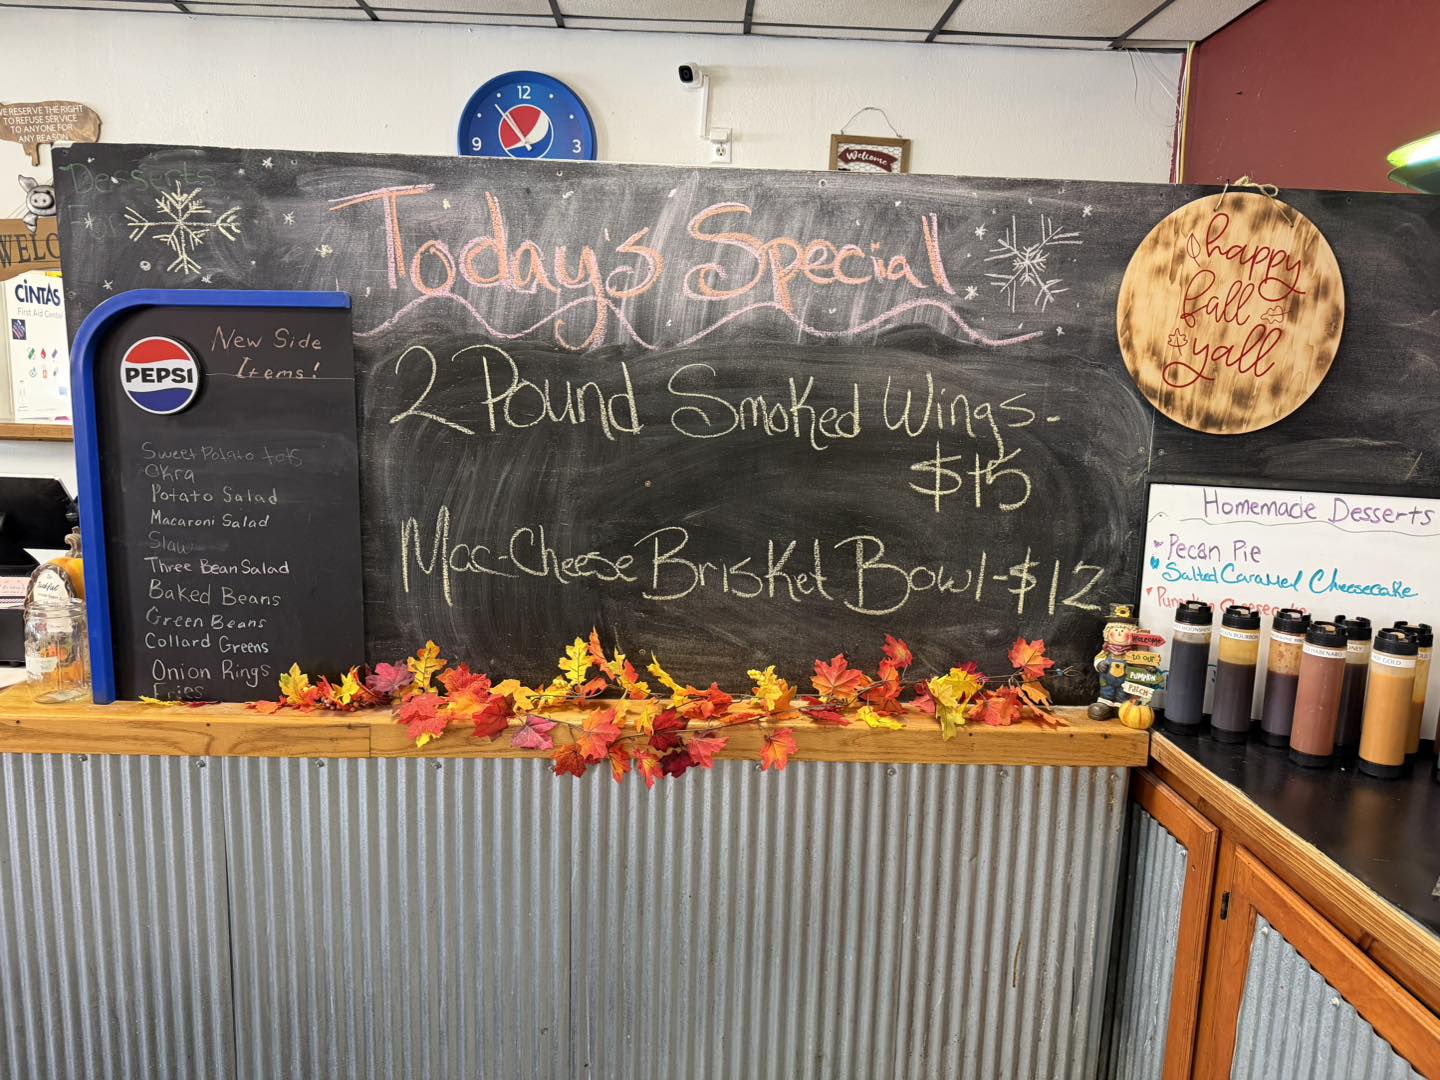 WE RESERVE THE RIGHT
TO REFUSE SERVICE
TO ANYONE FOR
ANY REASON
12
9
3
Welcome
Desserts
Today's Special
2 Pound Smoked Wings-
$15
Mac-Cheese Brisket Bowl-$12
WELC
CINTAS
First Aid Center
PEPSI
New Side
Items!
Sweet Potato tots
Okra
Potato Salad
Macaroni Salad
Slaw
Three Bean Salad
Baked Beans
Green Beans
Collard Greens
Onion Rings
Fries
happy
fall
y'all
Homemade Desserts
Pecan Pie
Salted Caramel Cheesecake
Pumpkin Cheesecake
WELCOME
TO OUR
PUMPKIN
PATCH
HABENARO
GOLD